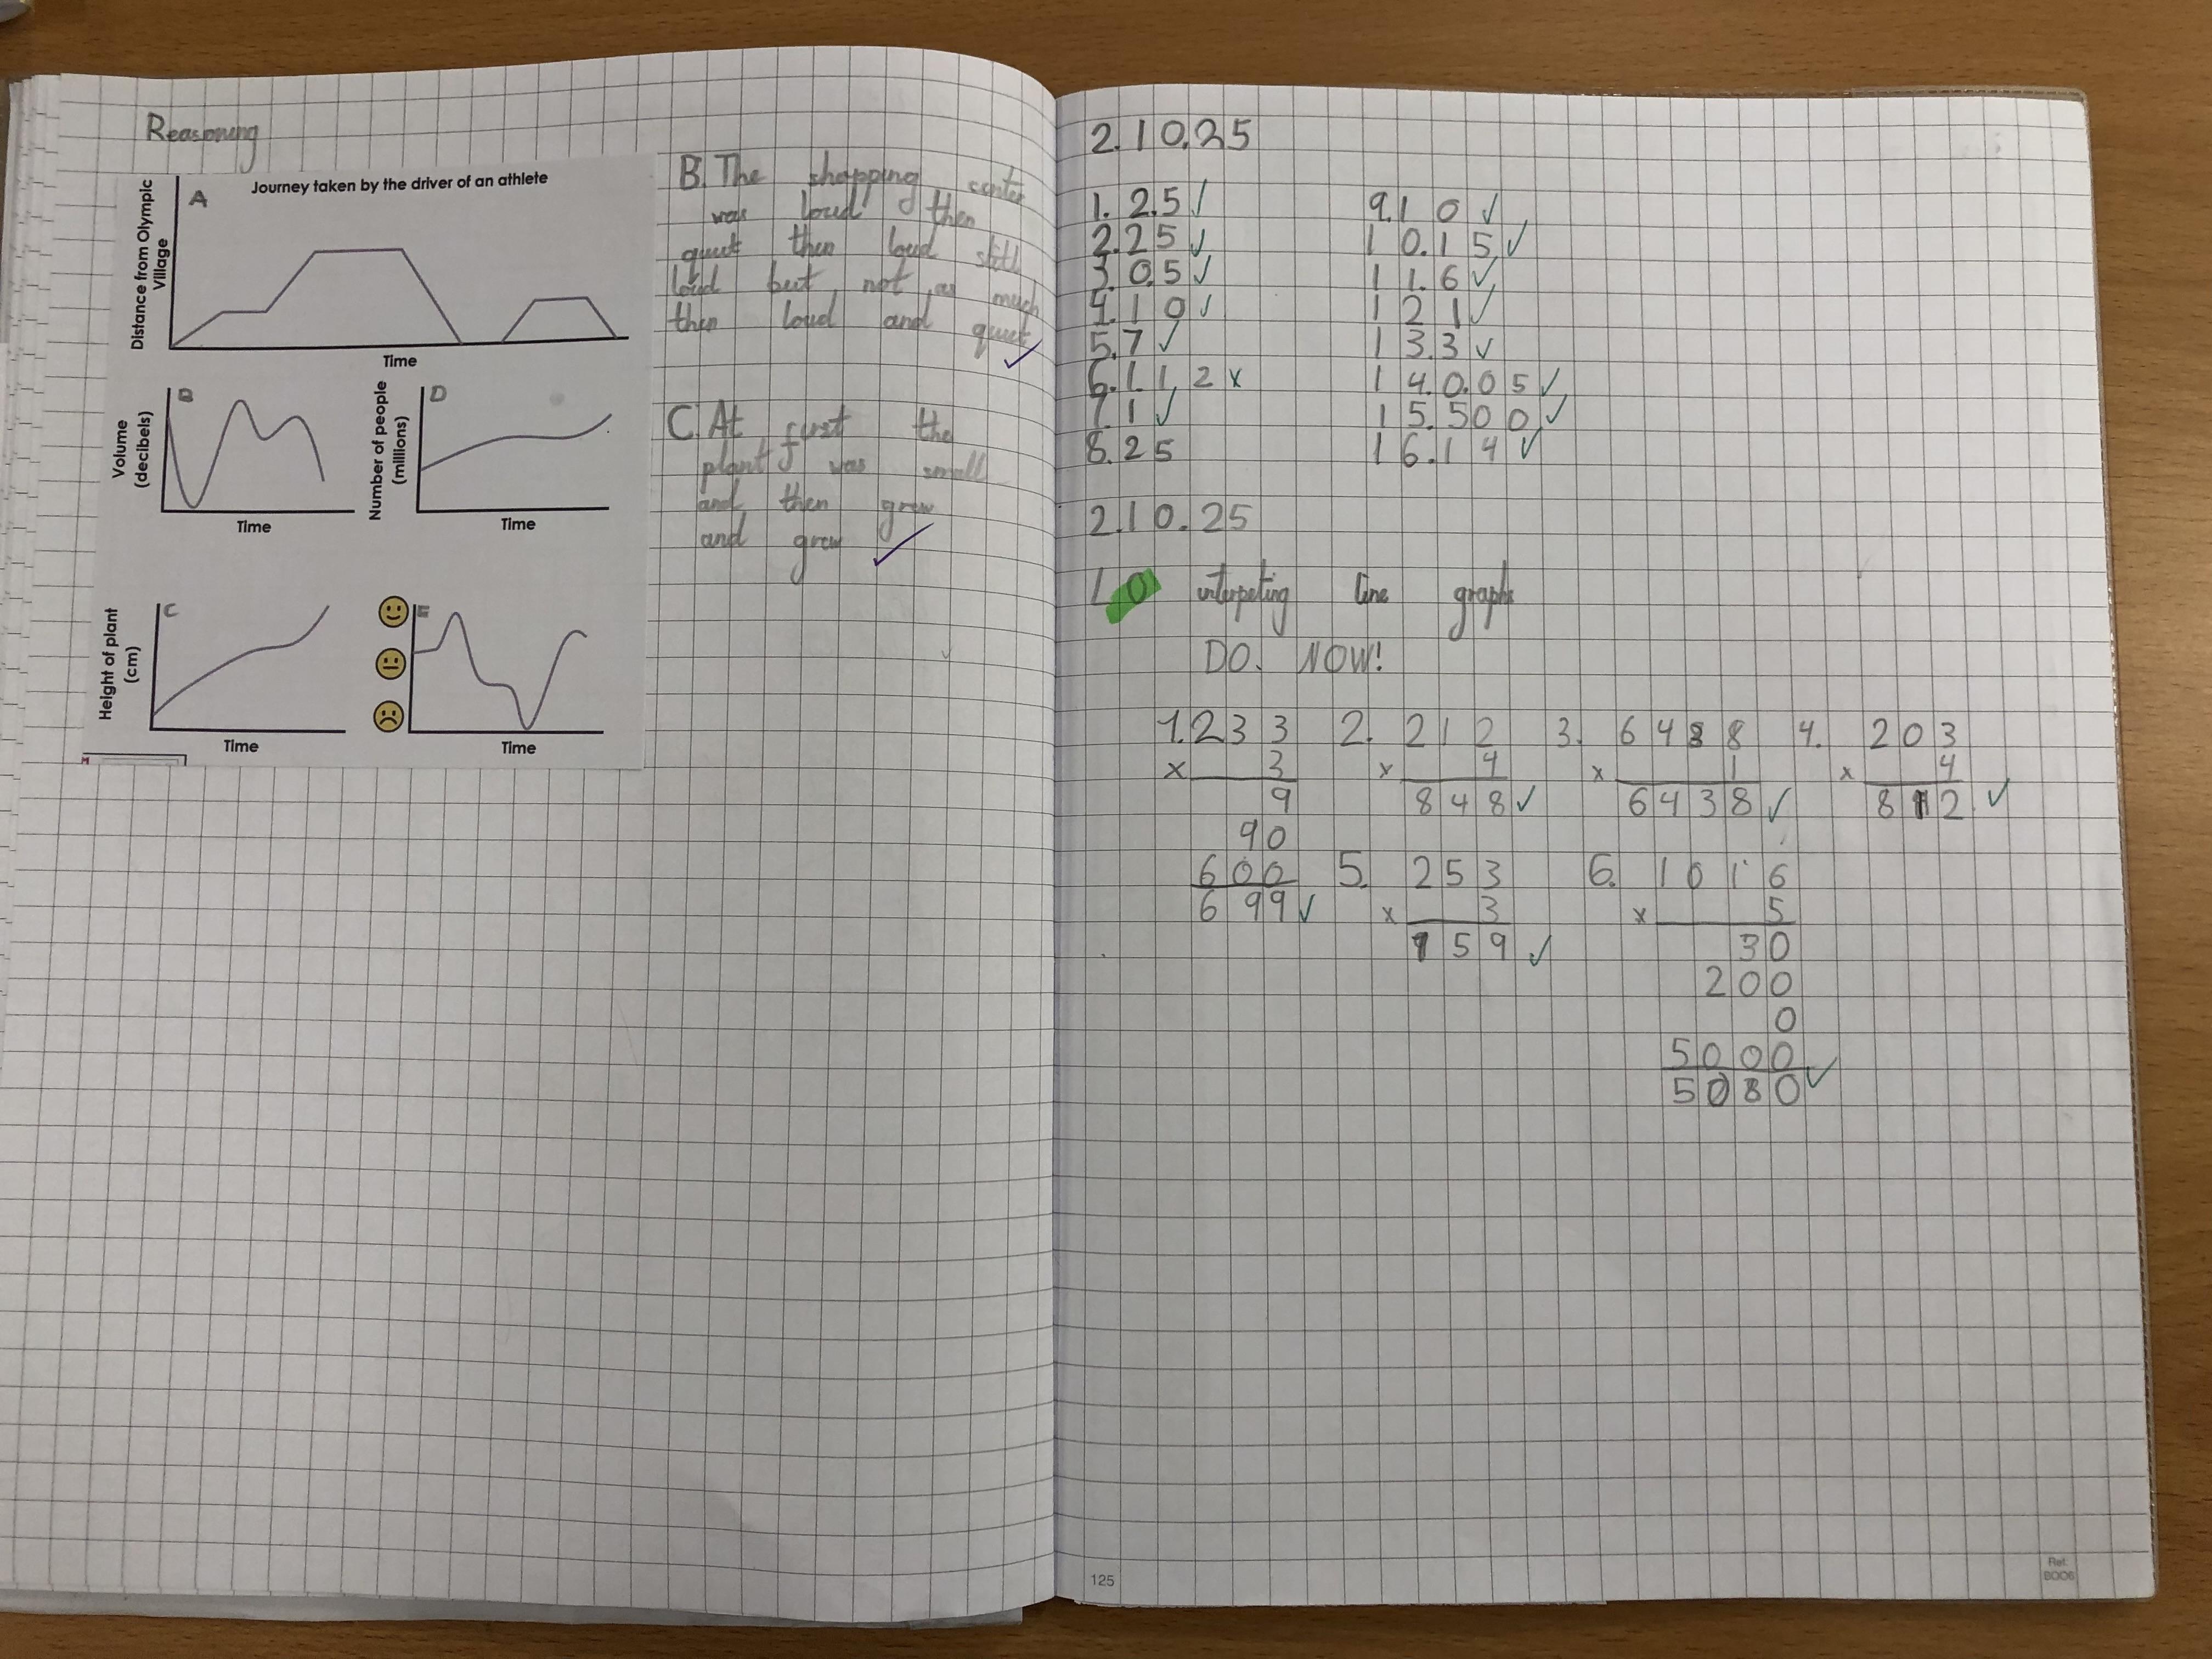 Reasoning
A
Journey taken by the driver of an athlete
Distance from Olympic
Village
Time
B
Volume
(decibels)
Time
D
Number of people
(millions)
Time
C
Height of plant
(cm)
Time
E
Time
B. The shopping center
was loud then
quiet then loud still
loud but not as much
then loud and quiet
C. At first the
plant was small
and then grew
and grew
2.10.25
1. 2.5 ✓
2. 25 ✓
3. 0.5 ✓
4. 10 ✓
5. 7 ✓
6. 1 1, 2 x
7. 1 ✓
8. 25
9. 10 ✓
10. 15 ✓
11. 6 ✓
12 1 ✓
13. 3 ✓
14. 0.05 ✓
15. 500 ✓
16. 14 ✓
2.10.25
LO interpeting line graphs
DO. NOW!
1. 233
x 3
9
90
600
699 ✓
2. 212
x 4
848 ✓
3.
x 1
6438 ✓
4. 203
x 4
812 ✓
5. 253
x 3
759 ✓
6. 1016
x 5
30
200
0
5000
5080 ✓
125
Ref.
BOO6